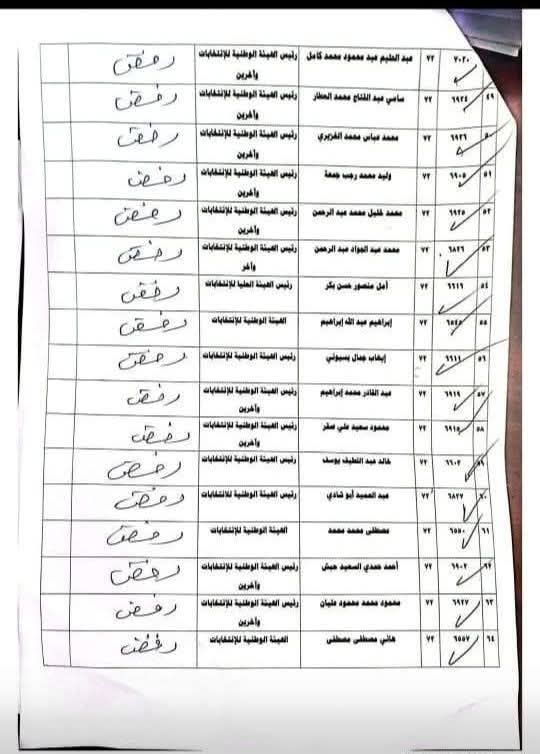 ٧٠٢٠ ٧٢ عبد الحليم عبد محمود محمد كامل رئيس الهيئة الوطنية للإنتخابات رفض
وآخرين
٤٩ ٦٩٢٤ ٧٢ سامي عبد الفتاح محمد العطار رئيس الهيئة الوطنية للإنتخابات رفض
وآخرين
٦٩٢٦ ٧٢ محمد عباس محمد رئيس الهيئة الوطنية للإنتخابات رفض
وآخرين
٥١ ٦٩٠٥ ٧٢ وليد محمد رجب جمعة رئيس الهيئة الوطنية للإنتخابات رفض
وآخرين
٥٢ ٦٩٢٥ ٧٢ محمد خليل محمد عبد الرحمن رئيس الهيئة الوطنية للإنتخابات رفض
وآخرين
٥٣ ٦٨٢٦ ٧٢ محمد عبد الجواد عبد الرحمن رئيس الهيئة الوطنية للإنتخابات رفض
وآخر
٥٤ ٦٦١٩ ٧٢ أمل منصور حسن بكر رئيس الهيئة العليا للإنتخابات رفض
٥٥ ٧٢ إبراهيم عبد الله إبراهيم الهيئة الوطنية للإنتخابات رفض
٥٦ ٦٦١١ ٧٢ إيهاب جمال بسيوني رئيس الهيئة الوطنية للإنتخابات رفض
٥٧ ٦٩١٩ ٧٢ عبد القادر محمد إبراهيم رئيس الهيئة الوطنية للإنتخابات رفض
وآخرين
٥٨ ٦٩١٥ ٧٢ محمود سعيد علي صقر رئيس الهيئة الوطنية للإنتخابات رفض
وآخرين
٥٩ ٦٦٠٢ ٧٢ خالد عبد اللطيف يوسف رئيس الهيئة الوطنية للإنتخابات رفض
٦٠ ٦٨٢٧ ٧٢ عبد الحميد أبو شادي رئيس الهيئة الوطنية للإنتخابات رفض
٦١ ٦٥٥٠ ٧٢ مصطفى محمد محمد الهيئة الوطنية للإنتخابات رفض
٦٢ ٦٩٠٢ ٧٢ أحمد حمدي السعيد رئيس الهيئة الوطنية للإنتخابات رفض
وآخرين
٦٣ ٦٩٢٧ ٧٢ محمود محمد محمود رئيس الهيئة الوطنية للإنتخابات رفض
وآخرين
٦٤ ٦٥٥٧ ٧٢ هاني مصطفى مصطفى الهيئة الوطنية للإنتخابات رفض